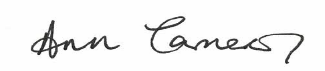 Ann Cameron